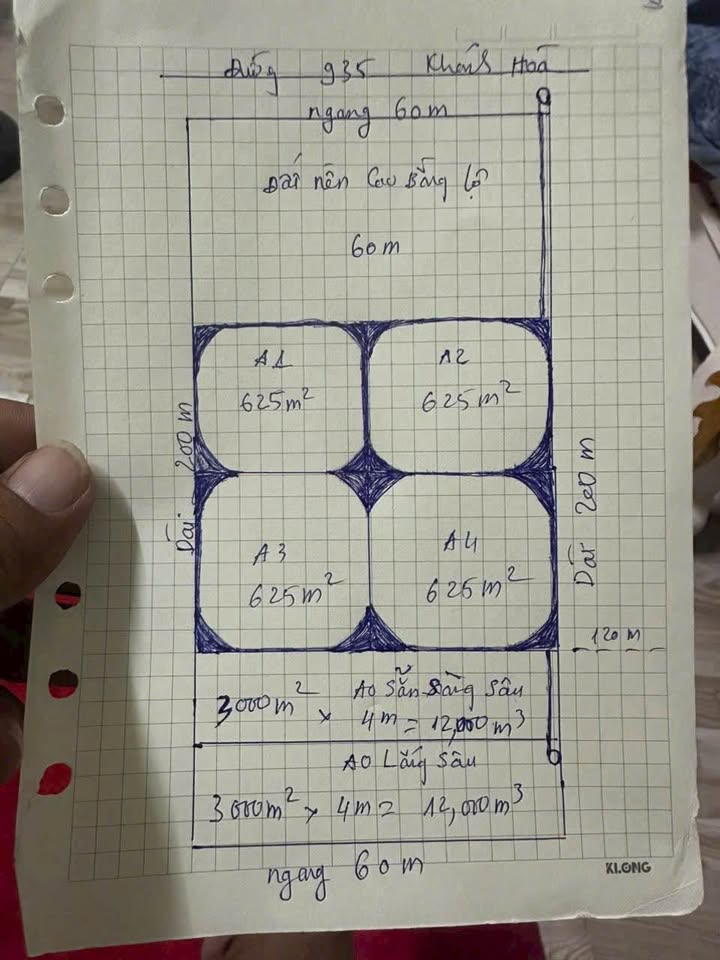 Đường 935 Khánh Hoà
ngang 60m
Đất nền Cao Bằng lộ
60m
A1
625m²
A2
625m²
Dài 200m
Dài 200m
A3
625m²
A4
625m²
120m
3000m² Ao Sẵn Sàng Sâu
x 4m = 12,000m³
AO Lắng Sâu
3000m² x 4m = 12,000m³
ngang 60m
KLONG